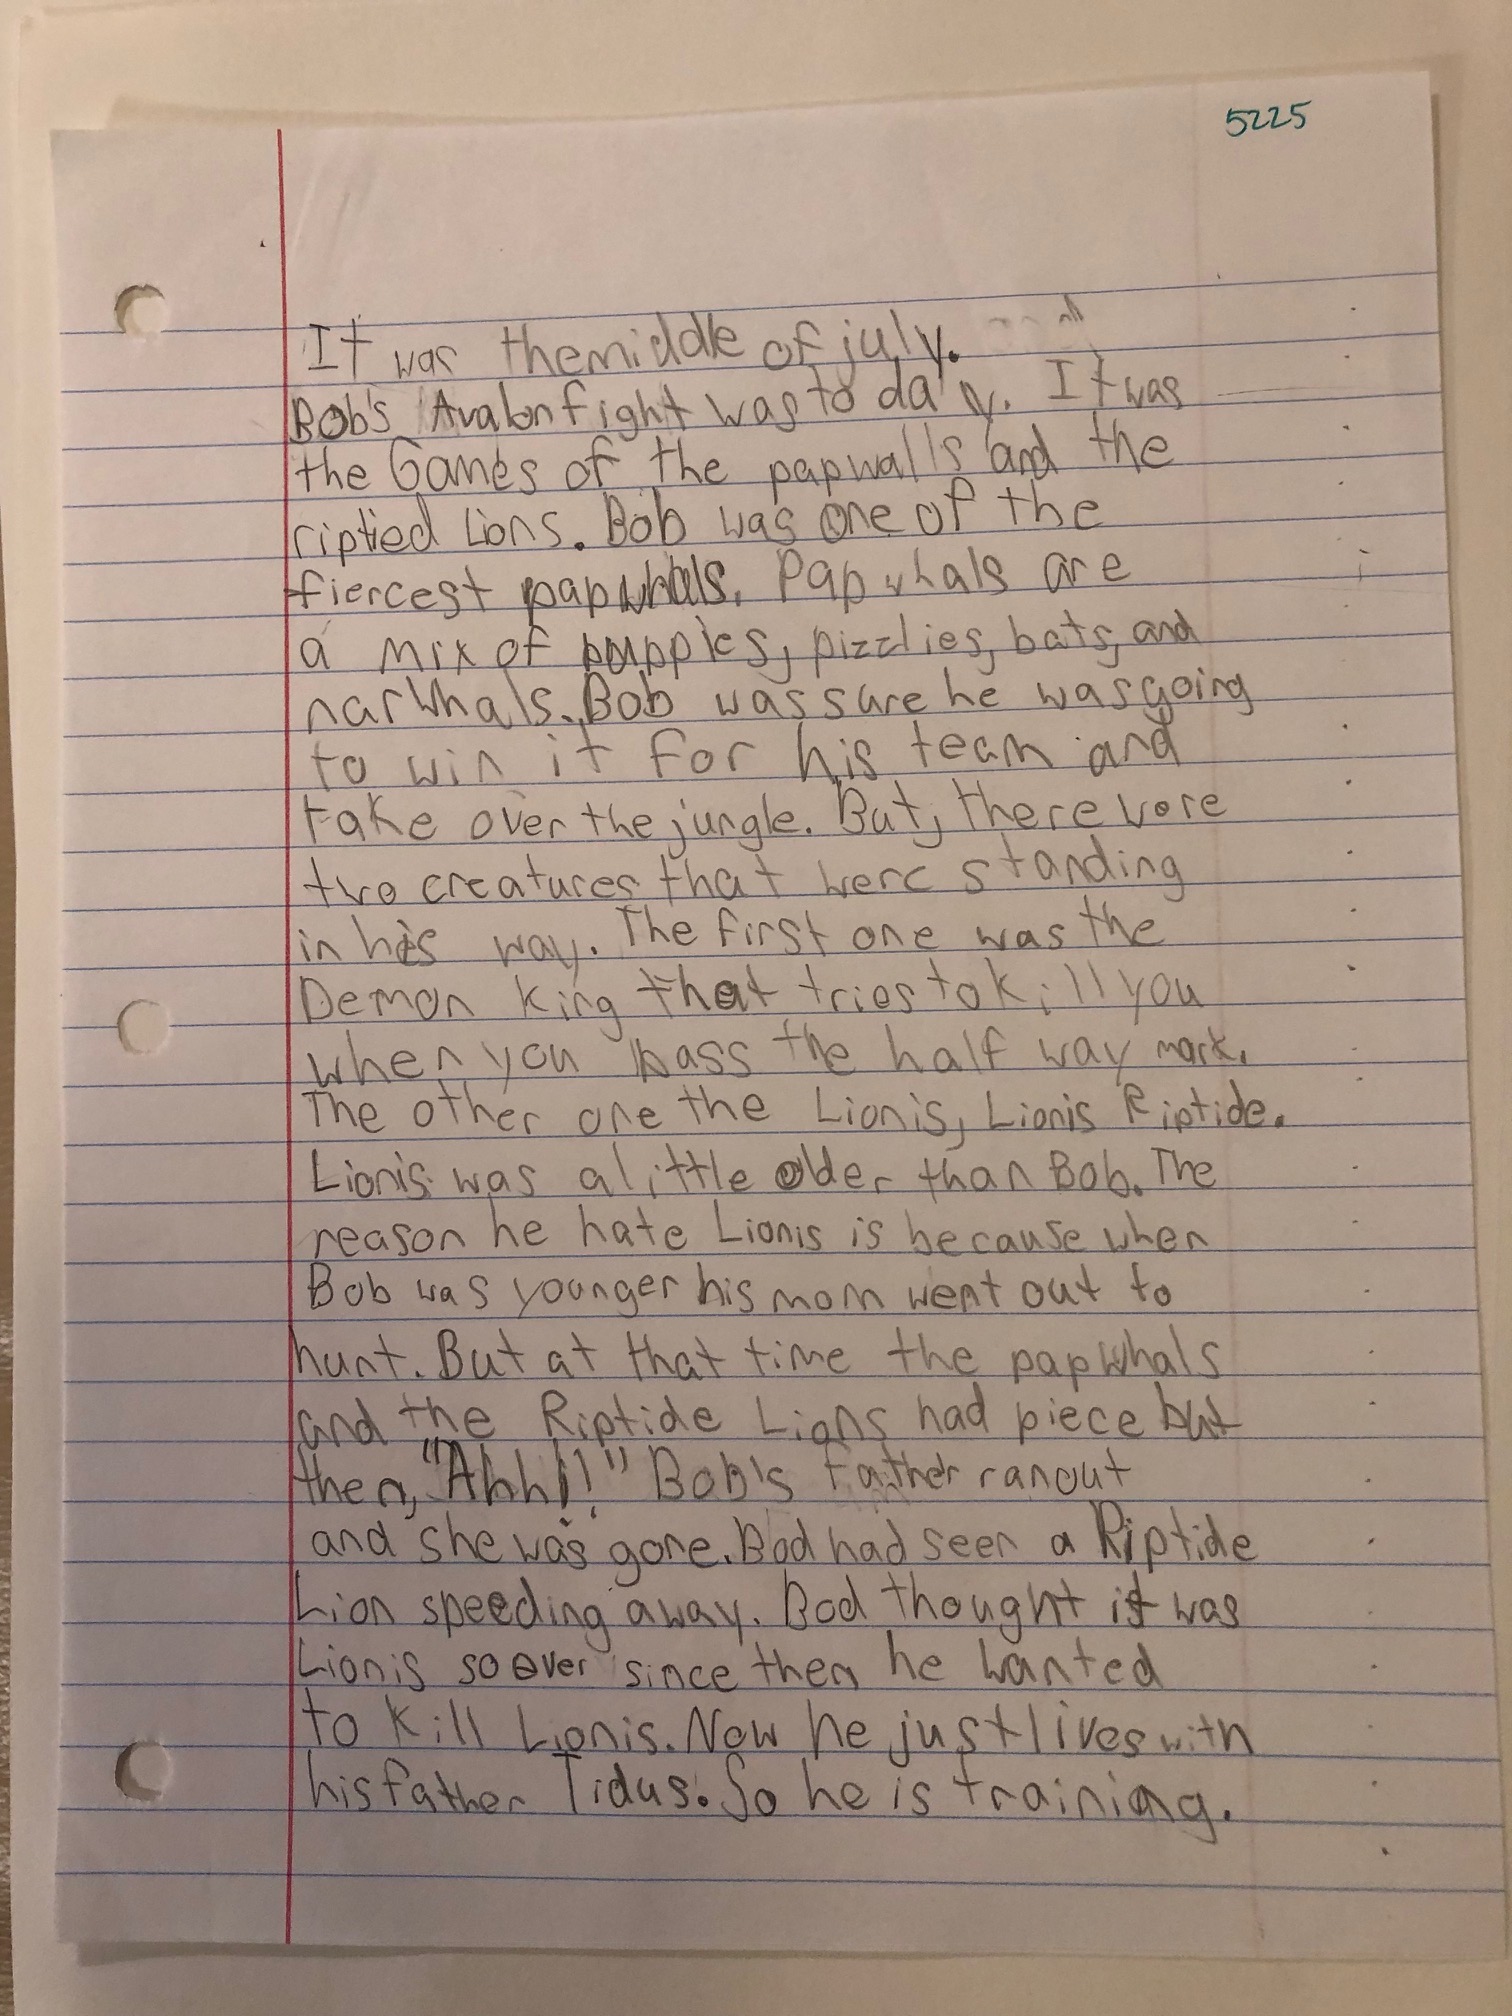 5225
It was the middle of july.
Bob's Avalon fight was to day. It was
the Games of the papwalls and the
riptied Lions. Bob was one of the
fiercest papwhals. Papwhals are
a mix of pupples, pizzlies, bats, and
narwhals. Bob was sure he was going
to win it for his team and
take over the jungle. But, there wore
two creatures that were standing
in his way. The first one was the
Demon King that tries to kill you
when you pass the half way mark.
The other one the Lionis, Lionis Riptide.
Lionis was a little older than Bob. The
reason he hate Lionis is because when
Bob was younger his mom went out to
hunt. But at that time the papwhals
and the Riptide Lions had piece but
then, "Ahh!!" Bob's father ran out
and she was gone. Bod had seen a Riptide
Lion speeding away. Bod thought it was
Lionis so ever since then he wanted
to kill Lionis. Now he just lives with
his father Tidus. So he is training.